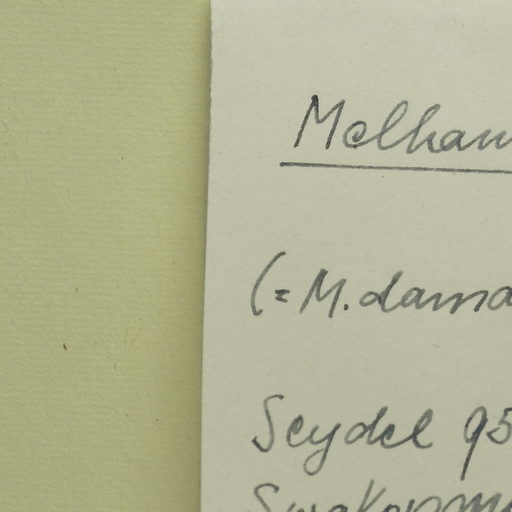 Melhan
(= M. dama
Seydel 95
Swakopm